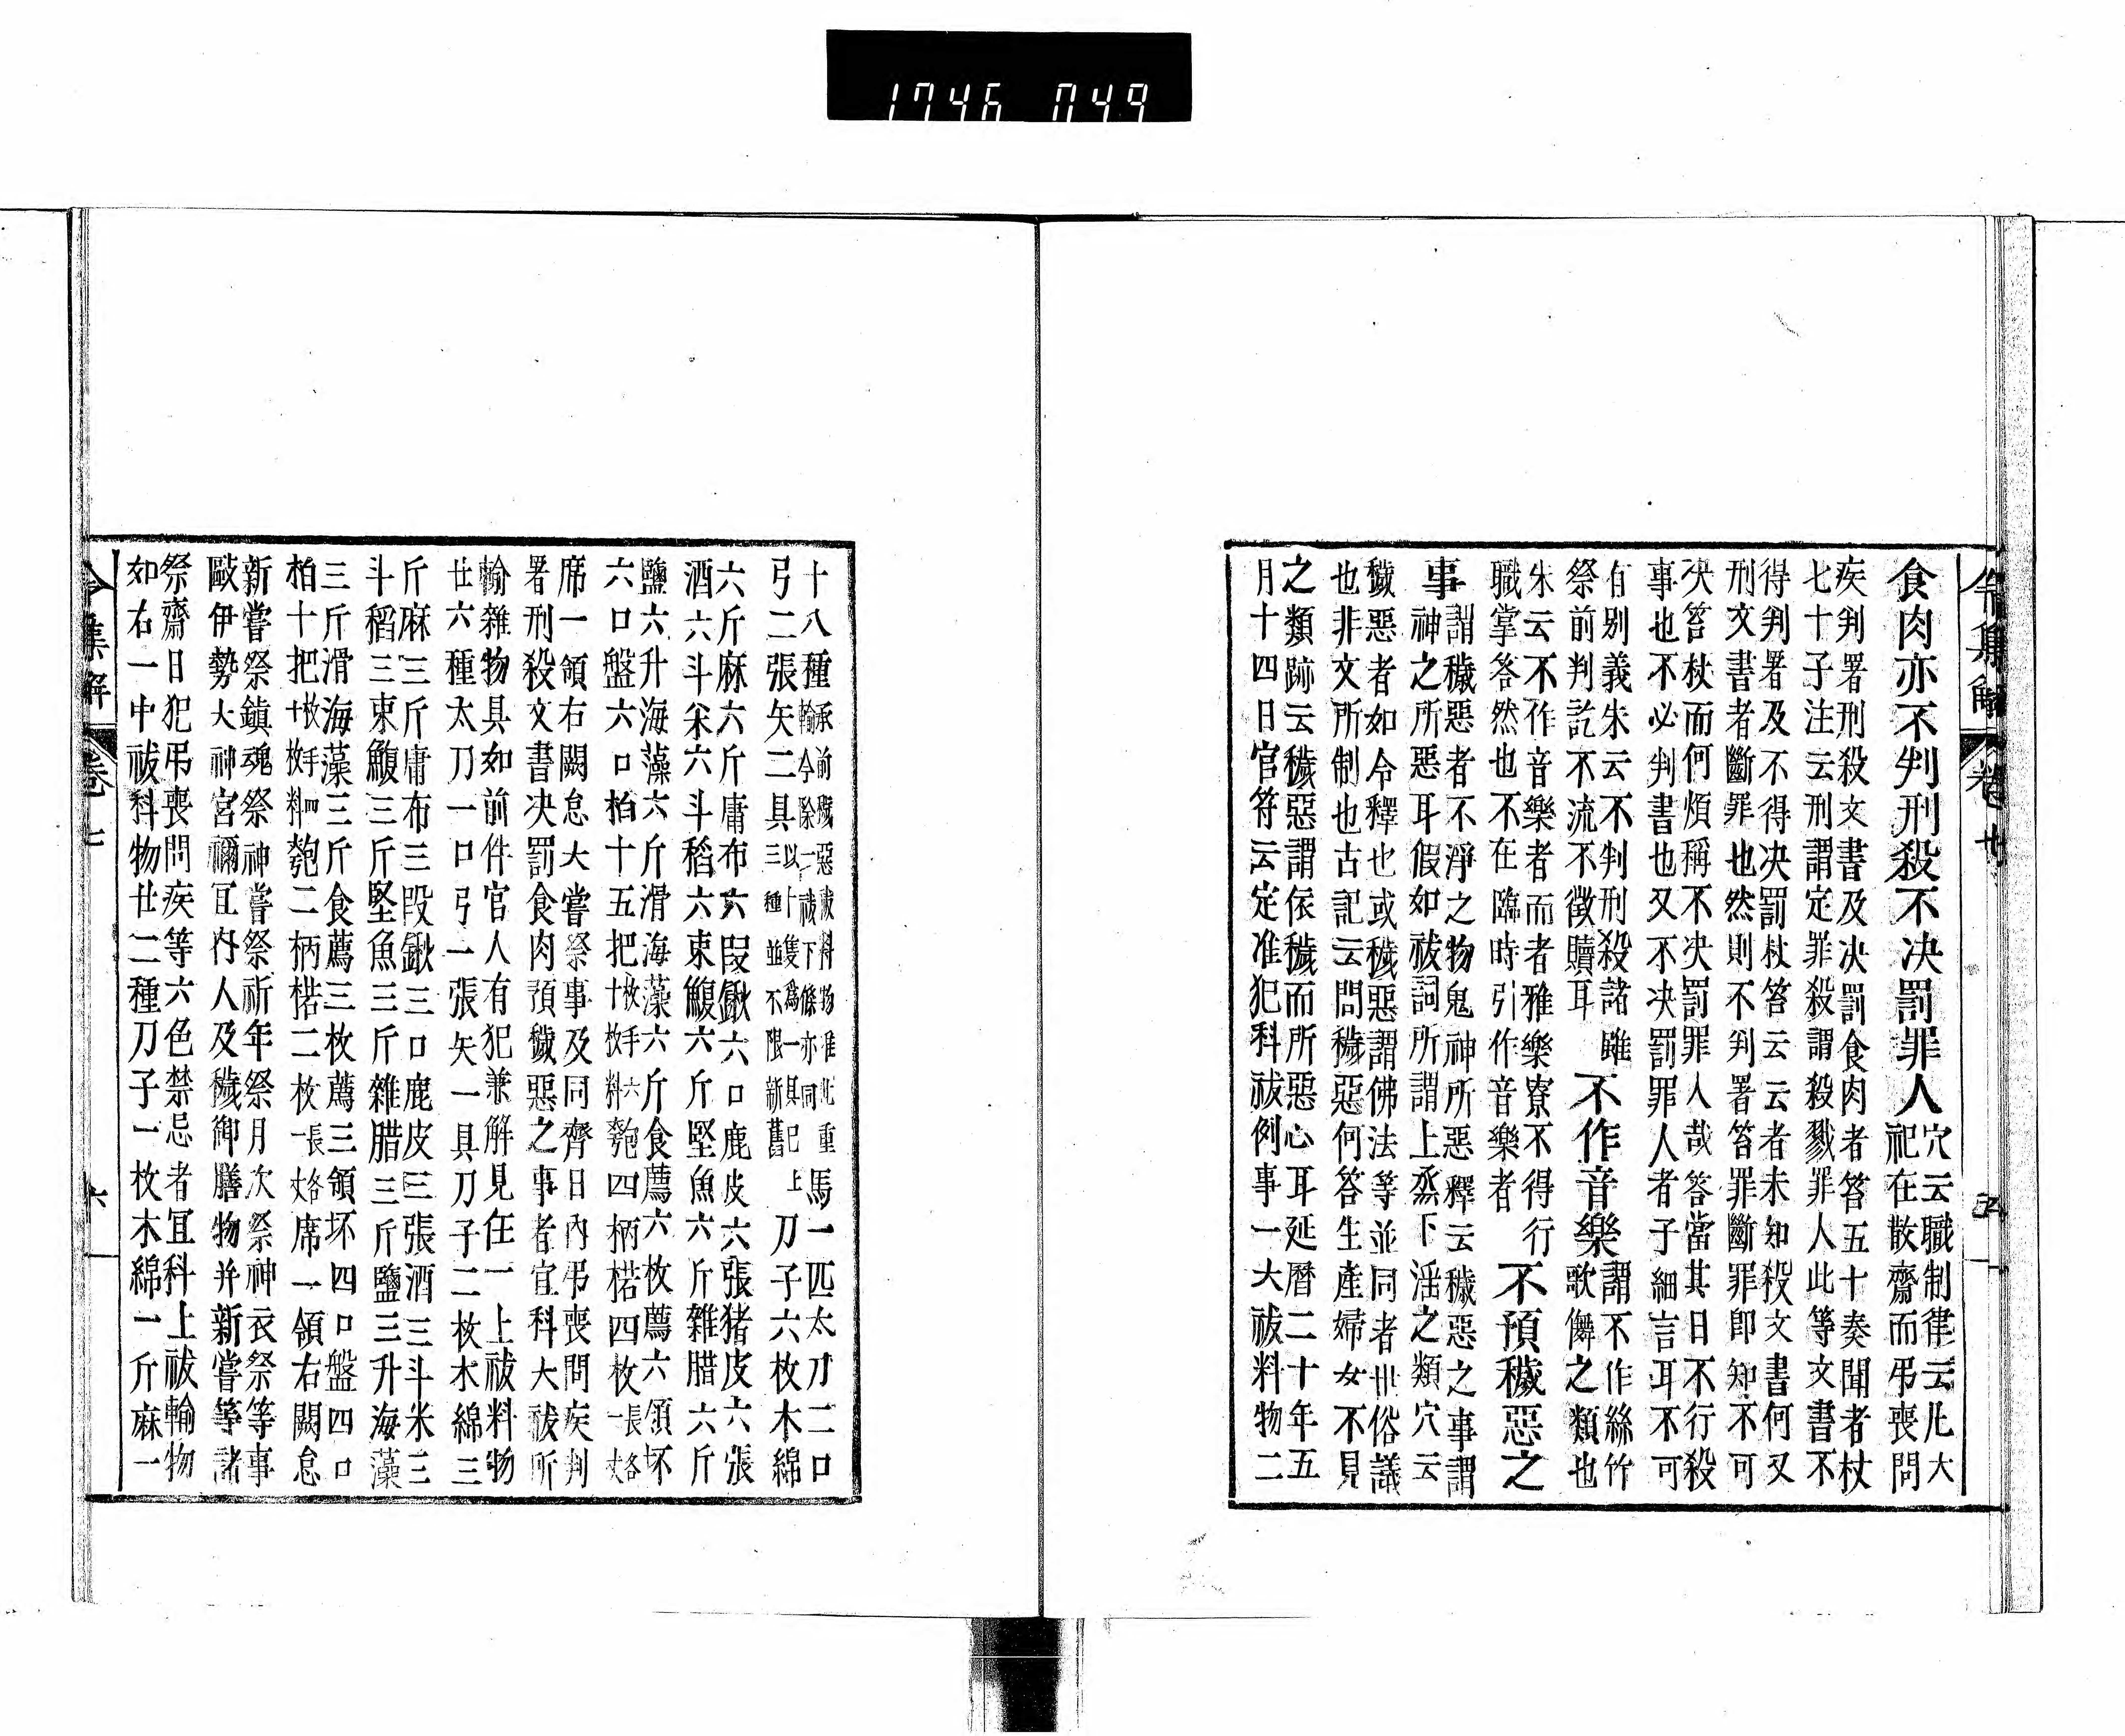 1746 049
令集解 卷七 五
食肉亦不判刑殺不决罰罪人穴云職制律云凢大
祀在散齋而弔喪問
疾判署刑殺文書及决罰食肉者笞五十奏聞者杖
七十子注云刑謂定罪殺謂殺戮罪人此等文書不
得判署及不得决罰杖笞云云者未知殺文書何又
刑文書者斷罪也然則不判署笞罪斷罪即知不可
决笞杖而何煩稱不决罰罪人哉答當其日不行殺
事也不必判書也又不决罰罪人者子細言耳不可
有别義朱云不判刑殺諸雖
祭前判訖不流不徵贖耳
不作音樂謂不作絲竹
歌儛之類也
朱云不作音樂者而者雅樂寮不得行
職掌答然也不在臨時引作音樂者
不預穢惡之
事謂穢惡者不淨之物鬼神所惡釋云穢惡之事謂
神之所惡耳假如祓詞所謂上烝下淫之類穴云
穢惡者如令釋也或穢惡謂佛法等並同者世俗議
也非文所制也古記云問穢惡何答生產婦女不見
之類跡云穢惡謂依穢而所惡心耳延曆二十年五
月十四日官符云定准犯科祓例事一大祓料物二
十八種承前穢惡祓料物准此重
輸今除一祓下條亦同
馬一匹太刀二口
弓二張矢二具以十隻爲一具已上
三種並不限新舊
刀子六枚木綿
六斤麻六斤庸布六段鍬六口鹿皮六張猪皮六張
酒六斗米六斗稻六束鰒六斤堅魚六斤雜腊六斤
鹽六升海藻六斤滑海藻六斤食薦六枚薦六領坏
六口盤六口柏十五把十枚手六
枚料
匏四柄楉四枚長各
一丈
席一領右闕怠大嘗祭事及同齊日內弔喪問疾判
署刑殺文書决罰食肉預穢惡之事者宜科大祓所
輸雜物具如前件官人有犯兼解見任一上祓料物
廿六種太刀一口弓一張矢一具刀子二枚木綿三
斤麻三斤庸布三段鍬三口鹿皮三張酒三斗米三
斗稻三束鰒三斤堅魚三斤雜腊三斤鹽三升海藻
三斤滑海藻三斤食薦三枚薦三領坏四口盤四口
柏十把十枚手四
枚料
匏二柄楉二枚長各
一丈
席一領右闕怠
新嘗祭鎮魂祭神嘗祭祈年祭月次祭神衣祭等事
毆伊勢大神宮禰冝內人及穢御膳物并新嘗等諸
祭齋日犯弔喪問疾等六色禁忌者宜科上祓輸物
如右一中祓料物廿二種刀子一枚木綿一斤麻一
令集解 卷七 六